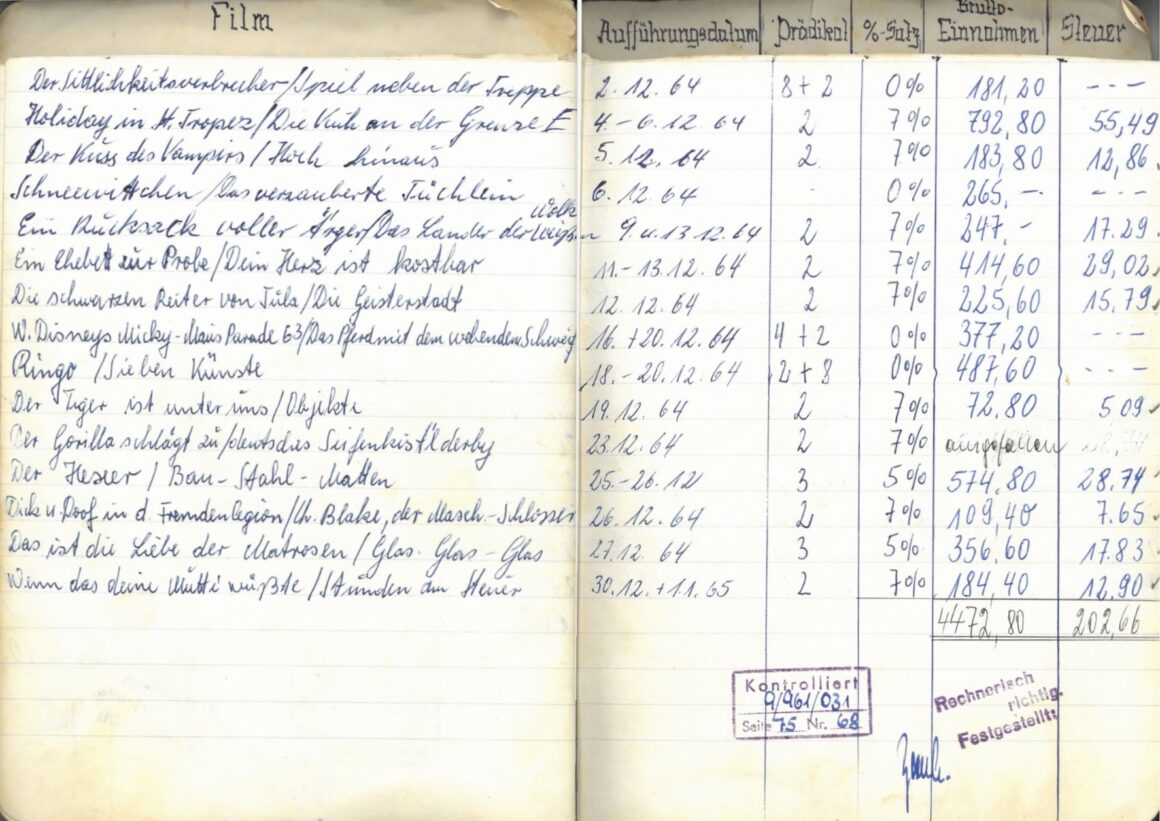 Film Aufführungsdatum Prädikat %-Satz Brutto-Einnahmen Steuer
Der Sittlichkeitsverbrecher/Spiel neben der Treppe 2.12.64 8+2 0% 181,20 ---
Holiday in St. Tropez/Die Kuh an der Grenze E 4.-6.12.64 2 7% 792,80 55,49
Der Kuss des Vampirs/Hoch hinaus 5.12.64 2 7% 183,80 12,86
Schneewittchen/Das verzauberte Tüchlein 6.12.64 - 0% 265,- ---
Ein Rucksack voller Ärger/Das Lander der 9.u.13.12.64 2 7% 247,- 17.29
Ein Ehebett zur Probe/Dein Herz ist kostbar 11.-13.12.64 2 7% 414,60 29,02
Die schwarzen Reiter von Tula/Die Geisterstadt 12.12.64 2 7% 225,60 15,79
W. Disneys Micky-Maus Parade 63/Das Pferd mit dem wehenden Schweif 16.+20.12.64 4+2 0% 377,20 ---
Ringo/Sieben Künste 18.-20.12.64 2+8 0% 487,60 ---
Der Tiger ist unter uns/Objekti 19.12.64 2 7% 72.80 5.09
Der Gorilla schlägt zu/deutsches Seifenkist'lderby 23.12.64 2 7% ausgefallen
Der Hexer/Bau-Stahl-Matten 25.-26.12 3 5% 574,80 28.74
Dick u. Doof in d. Fremdenlegion/W. Blake, der Masch.-Schlosser 26.12.64 2 7% 109,40 7.65
Das ist die Liebe der Matrosen/Glas-Glas-Glas 27.12.64 3 5% 356.60 17.83
Wenn das deine Mutti wüßte/Stunden am Steuer 30.12.+1.1.65 2 7% 184,40 12,90
4472,80 202,66
Kontrolliert
9/961/031
Seite 75 Nr. 68
Rechnerisch
richtig.
Festgestellt: